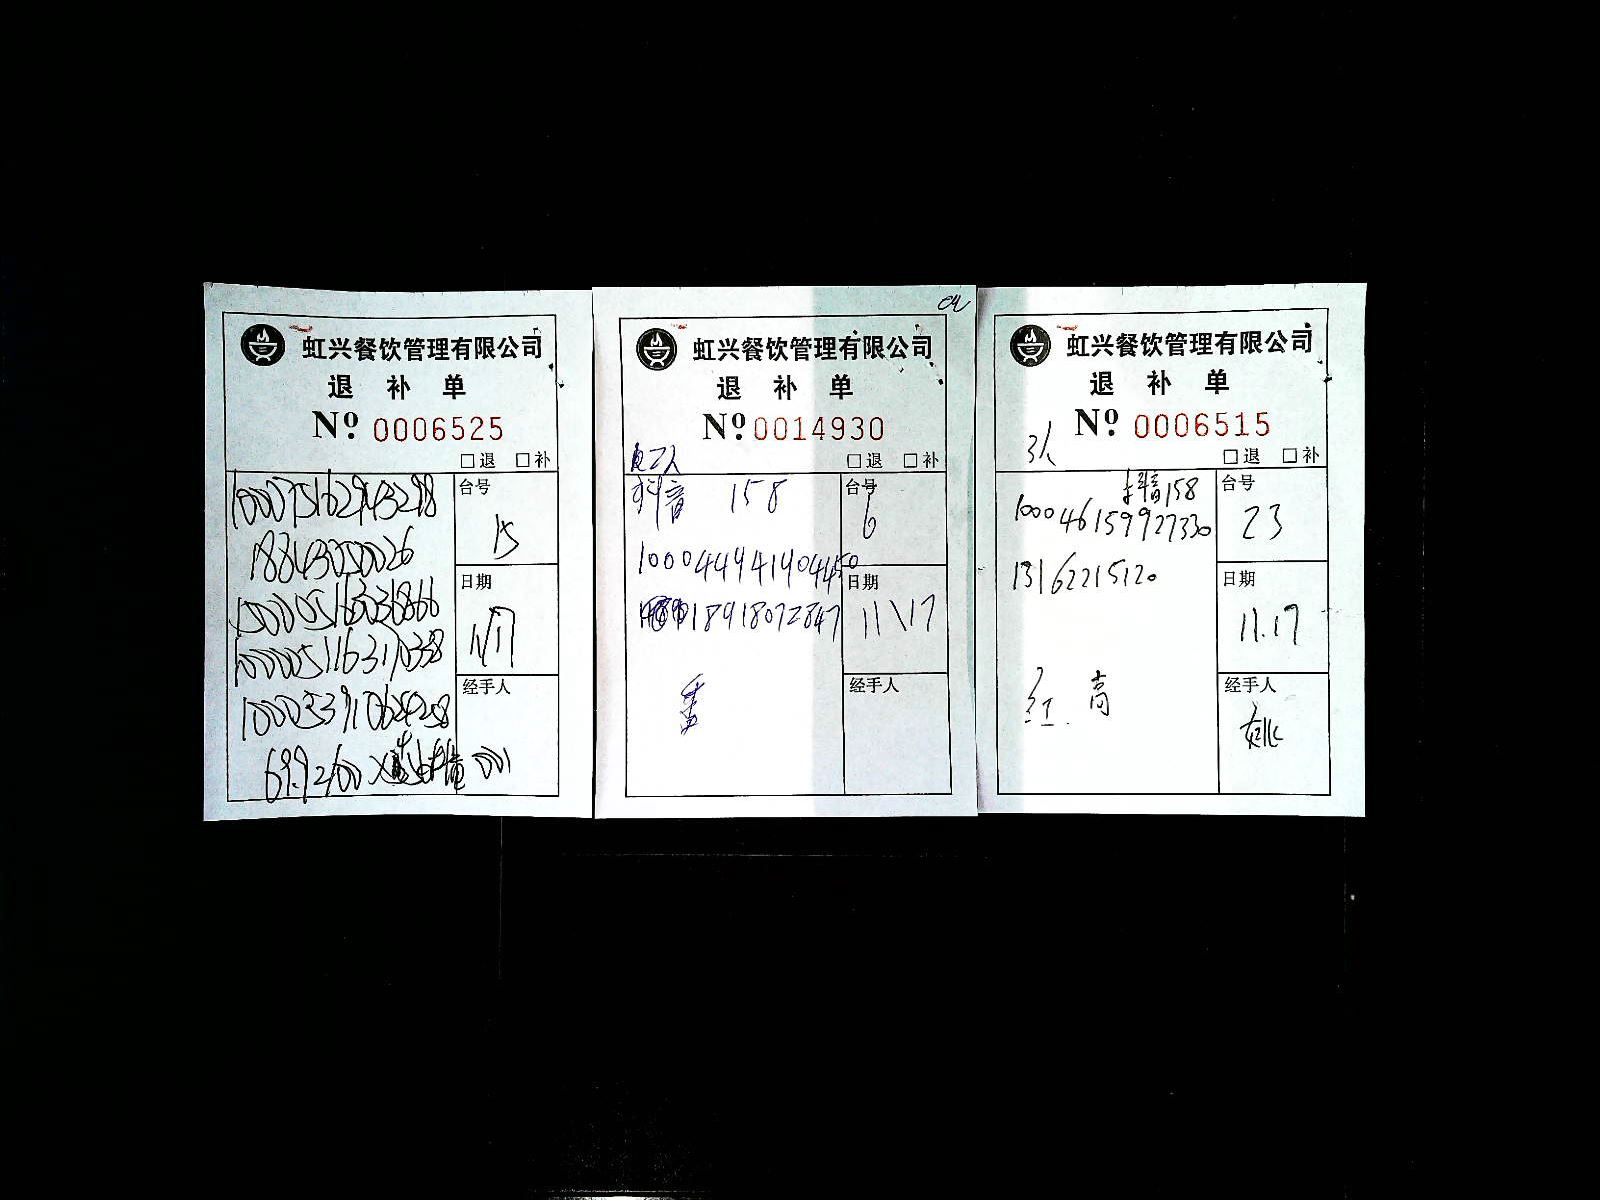 虹兴餐饮管理有限公司
退 补 单
Nº 0006525
□退 □补
1000751629143298
台号
15
18843050026
100005163036866
日期
11/17
1000051163170338
经手人
1000539106242508
69.9 2/100
001
虹兴餐饮管理有限公司
退 补 单
Nº 0014930
□退 □补
抖音 158
台号
6
1000444941904450
日期
11\17
18918072847
经手人
虹兴餐饮管理有限公司
退 补 单
Nº 0006515
3人
□退 □补
抖音158
台号
23
100046159927330
13162215120
日期
11.17
红. 高
经手人
姚